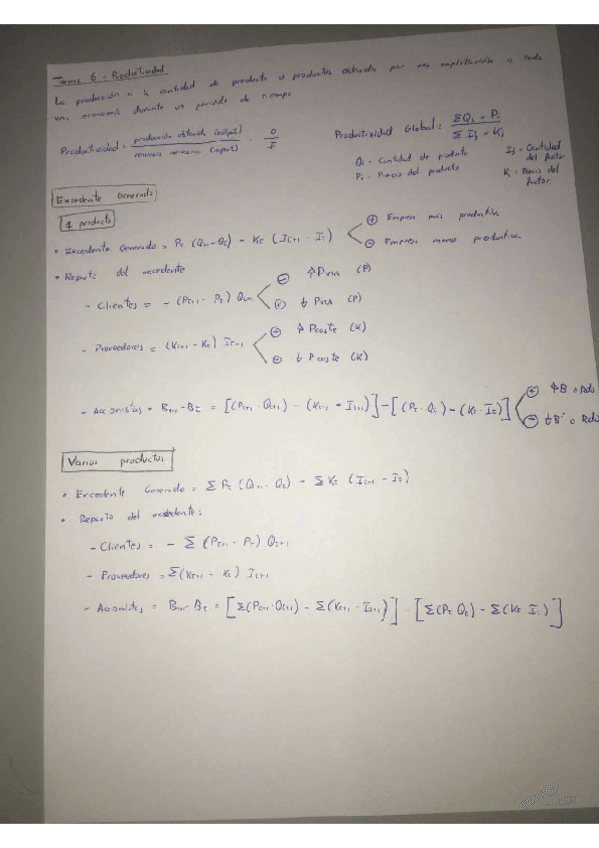 Tema 6 - Productividad
La producción es la cantidad de producto o productos obtenido por una explotación o toda
una economía durante un periodo de tiempo
Productividad = producción obtenida (output) / recursos necesarios (input) = O / I
Productividad Global = ΣQi · Pi / Σ Ij · Kj
Qi - Cantidad de producto
Pi - Precio del producto
Ij - Cantidad del factor
Kj - Precio del factor
Excedente Generado
1 producto
• Excedente Generado = Pt (Qt+1 - Qt) - Kt (It+1 - It)
⊕ Empresa más productiva
⊖ Empresa menos productiva
• Reparto del excedente
- Clientes = - (Pt+1 - Pt) Qt+1
⊖ ↑ Pvta (P)
⊕ ↓ Pvta (P)
- Proveedores = (Kt+1 - Kt) It+1
⊕ ↑ Pcoste (K)
⊖ ↓ Pcoste (K)
- Accionistas = Bt+1 - Bt = [(Pt+1 · Qt+1) - (Kt+1 · It+1)] - [(Pt · Qt) - (Kt · It)]
⊕ ↑B o
⊖ ↓B o
Varios productos
• Excedente Generado = Σ Pt (Qt+1 - Qt) - Σ Kt (It+1 - It)
• Reparto del excedente:
- Clientes = - Σ (Pt+1 - Pt) Qt+1
- Proveedores = Σ(Kt+1 - Kt) It+1
- Accionistas = Bt+1 - Bt = [Σ(Pt+1 · Qt+1) - Σ(Kt+1 · It+1)] - [Σ(Pt Qt) - Σ(Kt It)]